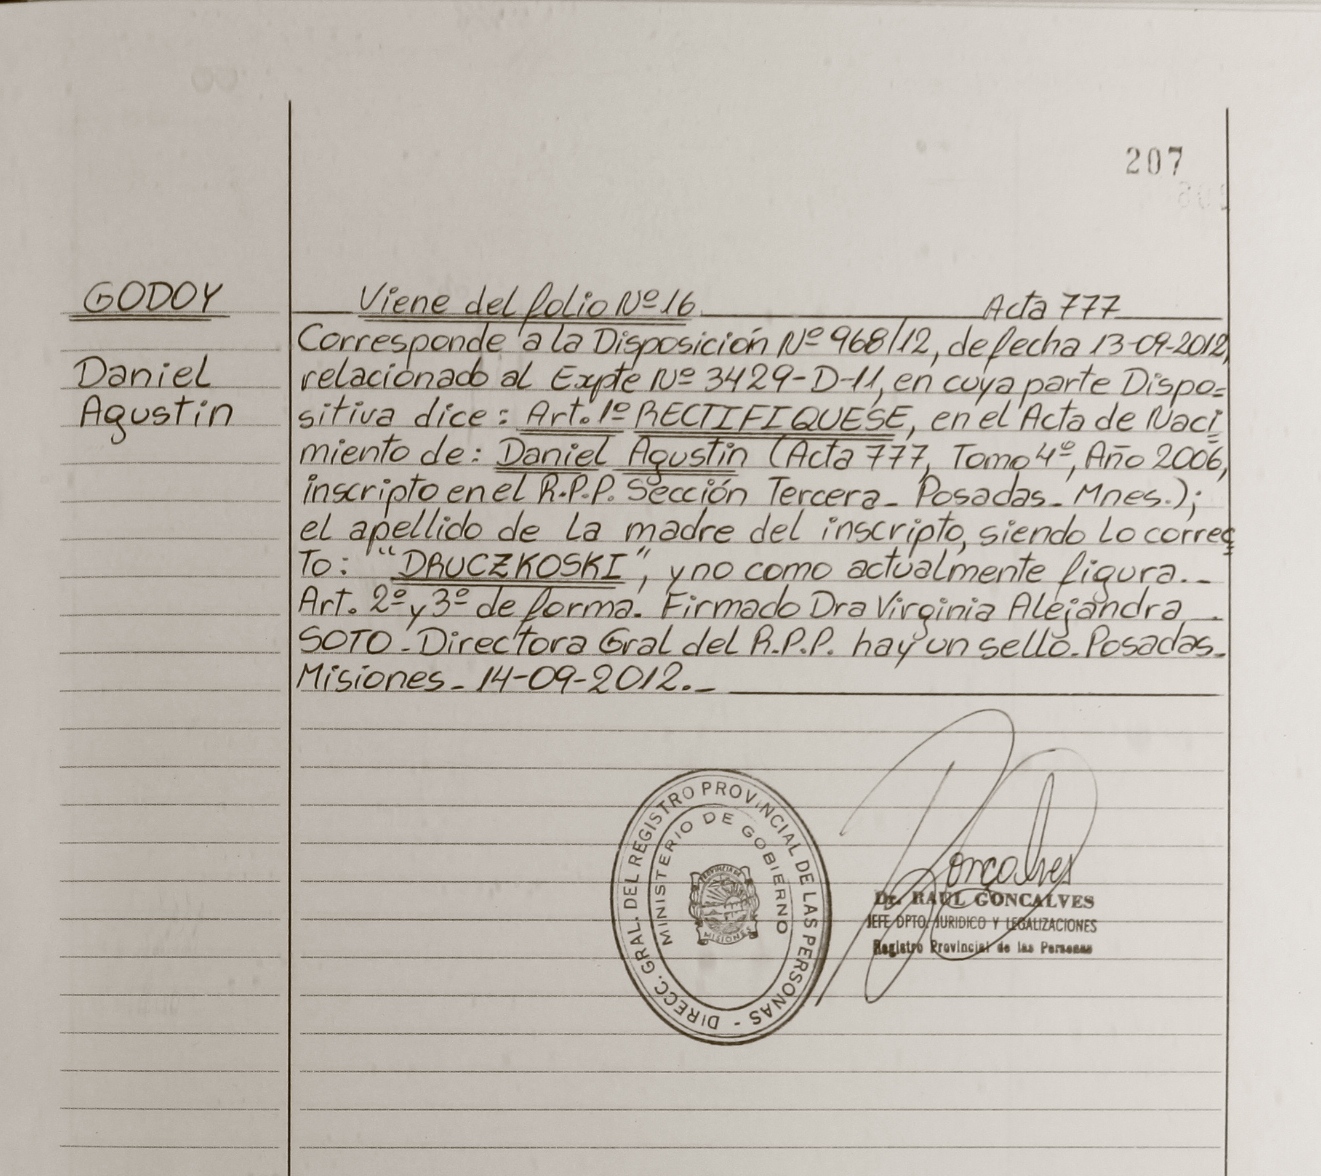 207
GODOY
Daniel
Agustin
Viene del folio Nº 16 Acta 777
Corresponde a la Disposición Nº 968/12, de fecha 13-09-2012,
relacionado al Expte Nº 3429-D-11, en cuya parte Dispo=
sitiva dice: Art. 1º RECTIFIQUESE, en el Acta de Naci
miento de: Daniel Agustin (Acta 777, Tomo 4º, Año 2006,
inscripto en el R.P.P. Sección Tercera_ Posadas_ Mnes.);
el apellido de la madre del inscripto, siendo lo correc
To: "DRUCZKOSKI", y no como actualmente figura._
Art. 2º y 3º de forma. Firmado Dra Virginia Alejandra
SOTO_Directora Gral del R.P.P. hay un sello_Posadas_
Misiones_ 14-09-2012._
DIRECC. GRAL. DEL REGISTRO PROVINCIAL DE LAS PERSONAS -
MINISTERIO DE GOBIERNO
PROVINCIA DE
MISIONES
Goncalves
Dr. RAUL GONCALVES
JEFE DPTO. JURIDICO Y LEGALIZACIONES
Registro Provincial de las Personas